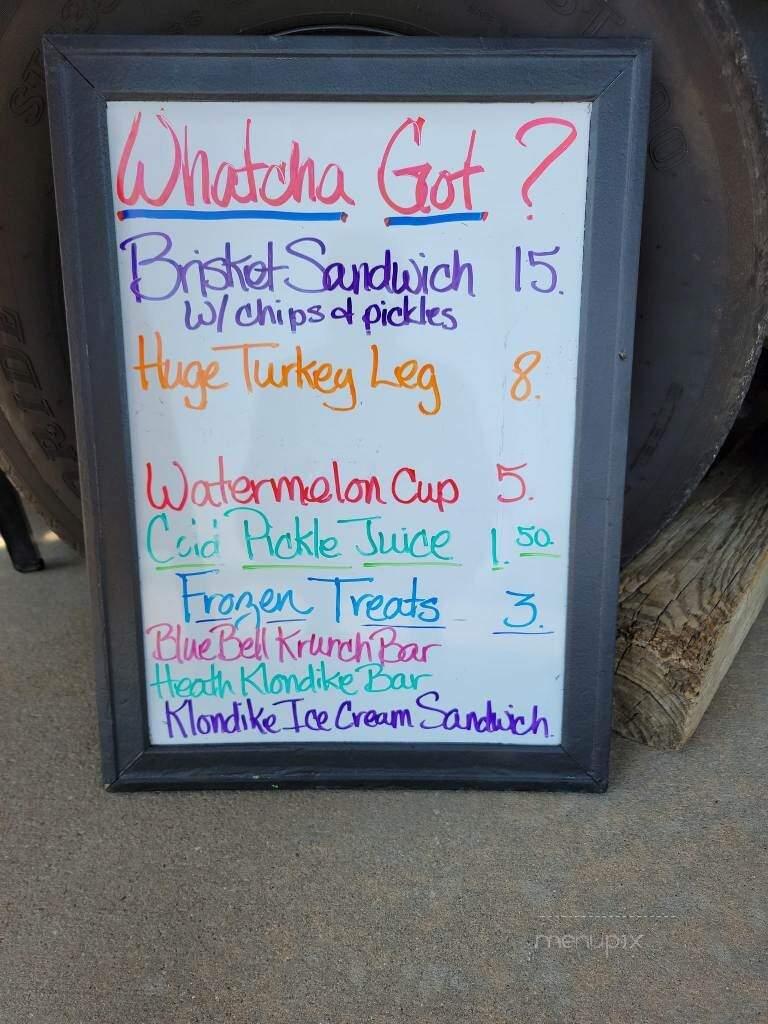 Whatcha Got ?
Brisket Sandwich 15.
w/ chips & pickles
Huge Turkey Leg 8.
Watermelon Cup 5.
Cold Pickle Juice 1.50
Frozen Treats 3.
Blue Bell Krunch Bar
Heath Klondike Bar
Klondike Ice Cream Sandwich
menupix